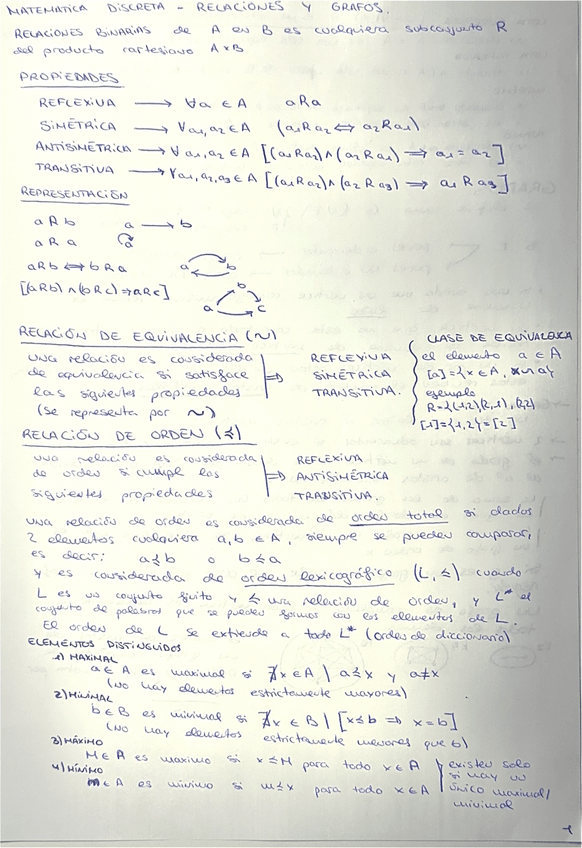 MATEMATICA DISCRETA - RELACIONES Y GRAFOS.
RELACIONES BINARIAS de A en B es cualquiera subconjunto R
del producto cartesiano A×B
PROPIEDADES
REFLEXIVA ⟶ ∀a ∈ A aRa
SIMÉTRICA ⟶ ∀a1,a2 ∈ A (a1Ra2 ⟺ a2Ra1)
ANTISIMÉTRICA ⟶ ∀a1,a2 ∈ A [(a1Ra2)∧(a2Ra1) ⟹ a1=a2]
TRANSITIVA ⟶ ∀a1,a2,a3 ∈ A [(a1Ra2)∧(a2Ra3) ⟹ a1Ra3]
REPRESENTACIÓN
aRb a ⟶ b
aRa a
aRb ⟺ bRa a b
[(aRb)∧(bRc)⇒aRc] a b c
RELACIÓN DE EQUIVALENCIA (~)
una relación es considerada
de equivalencia si satisface
las siguientes propiedades
(se representa por ~)
⟹ REFLEXIVA
SIMÉTRICA
TRANSITIVA.
CLASE DE EQUIVALENCIA
el elemento a ∈ A
[a]={x∈A, x~a}
ejemplo
R={(1,2)(2,1),(2,2)
[1]={1,2}=[2]
RELACIÓN DE ORDEN (≼)
una relación es considerada
de orden si cumple las
siguientes propiedades
⟹ REFLEXIVA
ANTISIMÉTRICA
TRANSITIVA.
una relación de orden es considerada de orden total si dados
2 elementos cualquiera a,b ∈ A, siempre se pueden comparar,
es decir: a≼b o b≤a
y es considerada de orden lexicográfico (L,≤) cuando
L es un conjunto finito y ≤ una relación de orden, y L* el
conjunto de palabras que se pueden formar con los elementos de L.
El orden de L se extiende a todo L* (orden de diccionario)
ELEMENTOS DISTINGUIDOS
1) MAXIMAL
a ∈ A es maximal si ∄x∈A | a≼x y a≠x
(no hay elementos estrictamente mayores)
2) MINIMAL
b∈B es minimal si ∄x∈B | [x≤b ⟹ x=b]
(no hay elementos estrictamente menores que b)
3) MÁXIMO
M∈A es maximo si x≤M para todo x∈A
4) MÍNIMO
m∈A es minimo si m≤x para todo x∈A
existen solo
si hay un
único maximal/
minimal
1